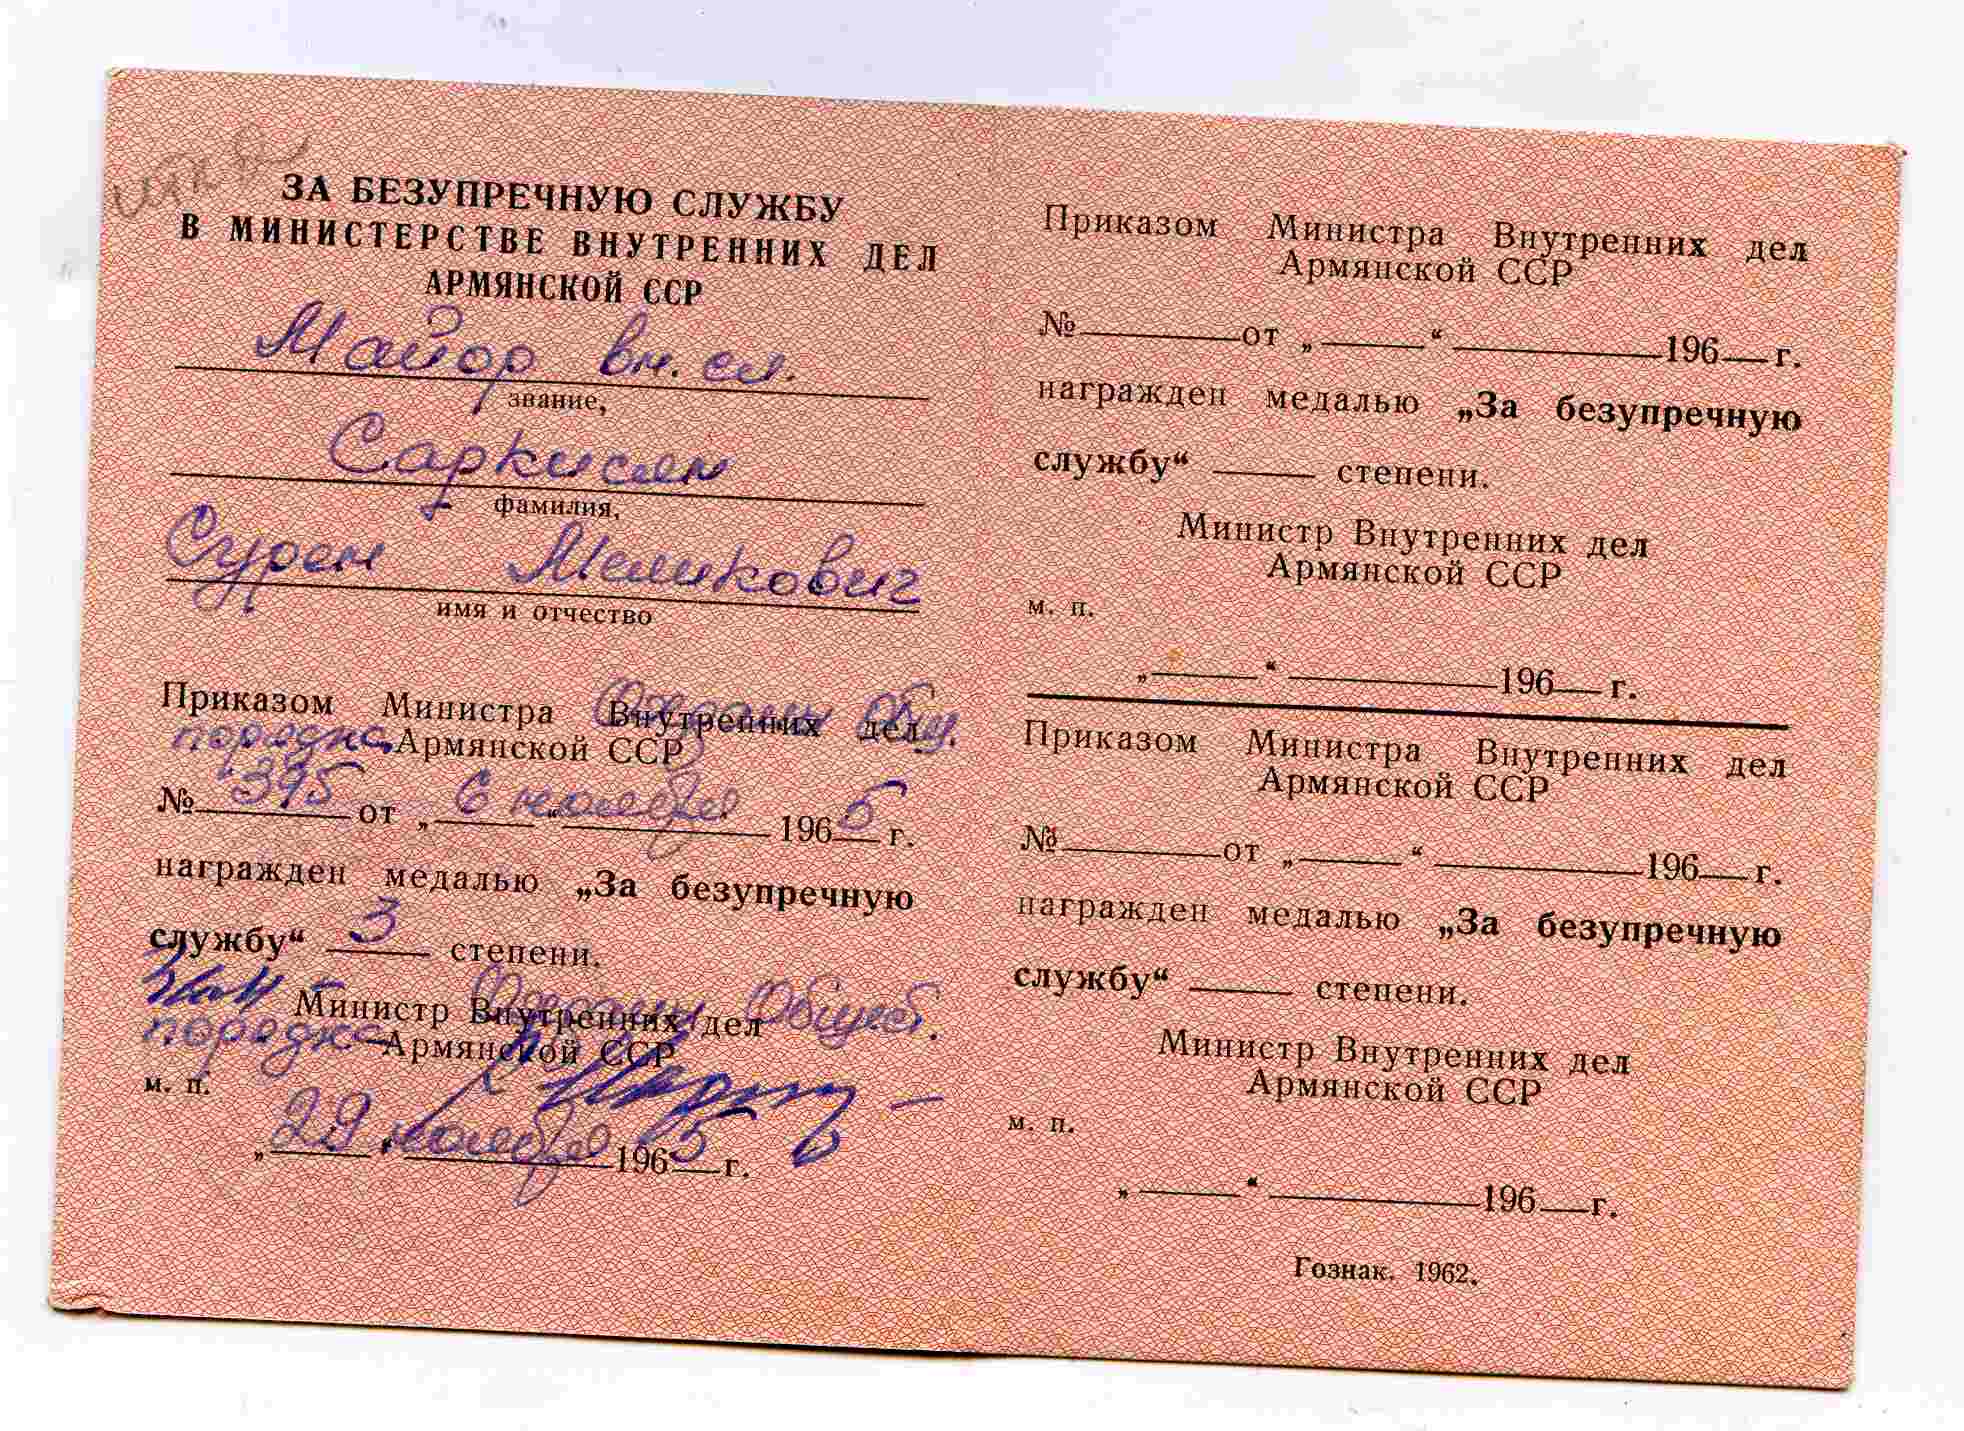 ЗА БЕЗУПРЕЧНУЮ СЛУЖБУ
В МИНИСТЕРСТВЕ ВНУТРЕННИХ ДЕЛ
АРМЯНСКОЙ ССР
Майор вн. сл.
звание,
Саркисян
фамилия,
Сурен Меликович
имя и отчество
Приказом Министра Внутренних дел Охраны Общ.
порядка Армянской ССР
№ 395 от „6 ноября“ 1965 г.
награжден медалью „За безупречную
службу“ 3 степени.
Министр Внутренних дел Охраны Общест.
порядка Армянской ССР
м. п.
„29 ноября 1965 г.
Приказом Министра Внутренних дел
Армянской ССР
№ от „ “ 196 г.
награжден медалью „За безупречную
службу“ степени.
Министр Внутренних дел
Армянской ССР
м. п.
„ “ 196 г.
Приказом Министра Внутренних дел
Армянской ССР
№ от „ “ 196 г.
награжден медалью „За безупречную
службу“ степени.
Министр Внутренних дел
Армянской ССР
м. п.
„ “ 196 г.
Гознак. 1962.